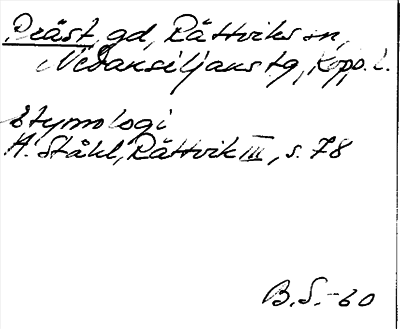 Präst, gd, Rättviks sn,
Nedansiljans tg, Kopp. l.
Etymologi
A. Ståhl, Rättvik III, s. 78
B.S. -60